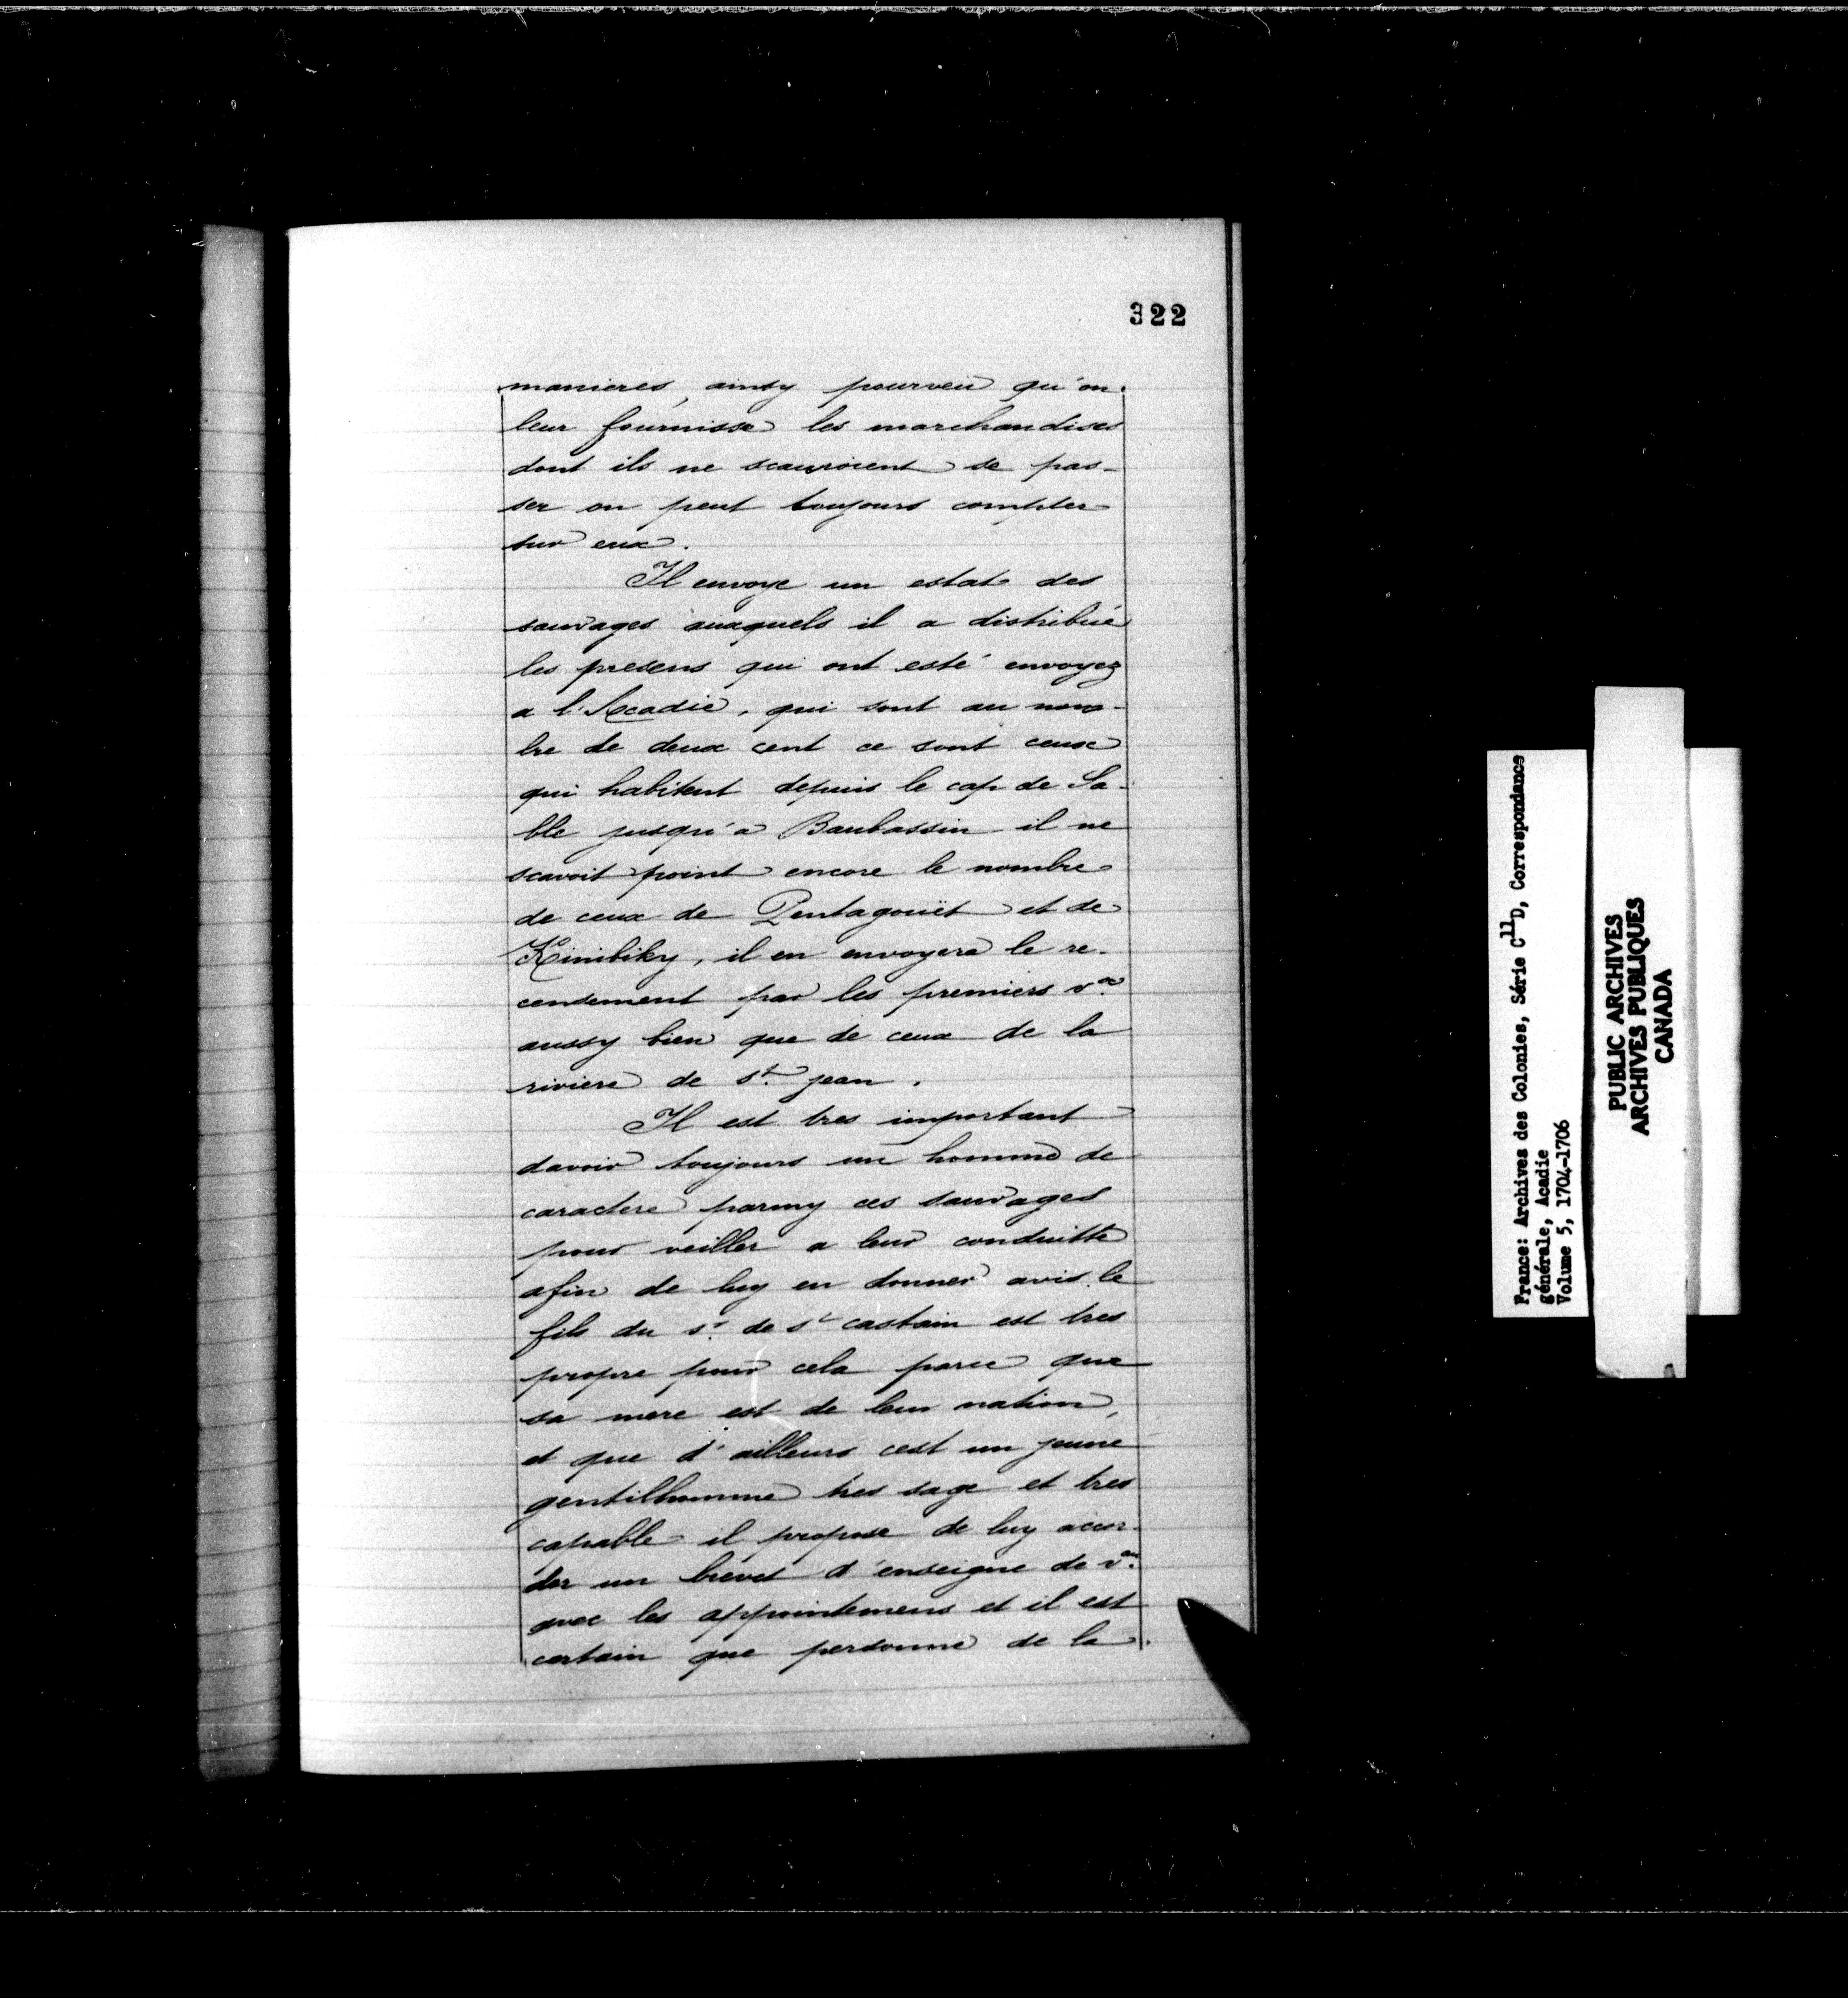 322
manieres, ainsy pourveu qu'on
leur fournisse les marchandises
dont ils ne scauroient se pas-
ser on peut toujours compter
sur eux.
Il envoye un estat des
sauvages auxquels il a distribué
les presens qui ont esté envoyez
a l'Acadie, qui sont au nom-
bre de deux cent ce sont ceux
qui habitent depuis le cap de Sa-
ble jusqu'a Baubassin il ne
scavoit point encore le nombre
de ceux de Pentagoüet et de
Kinibiky, il en envoyera le re-
censement par les premiers v.x
aussy bien que de ceux de la
riviere de st. jean.
Il est tres important
davoir toujours un homme de
caractere parmy ces sauvages
pour veiller a leur conduitte
afin de luy en donner avis. le
fils du sr. de st castain est tres
propre pour cela parce que
sa mere est de leur nation,
et que d'ailleurs cest un jeune
gentilhomme tres sage et tres
capable il propose de luy accor-
der un brevet d'enseigne de v.au
avec les appointemens et il est
certain que personne de la
France: Archives des Colonies, Série C11D, Correspondance
générale, Acadie
Volume 5, 1704-1706
PUBLIC ARCHIVES
ARCHIVES PUBLIQUES
CANADA